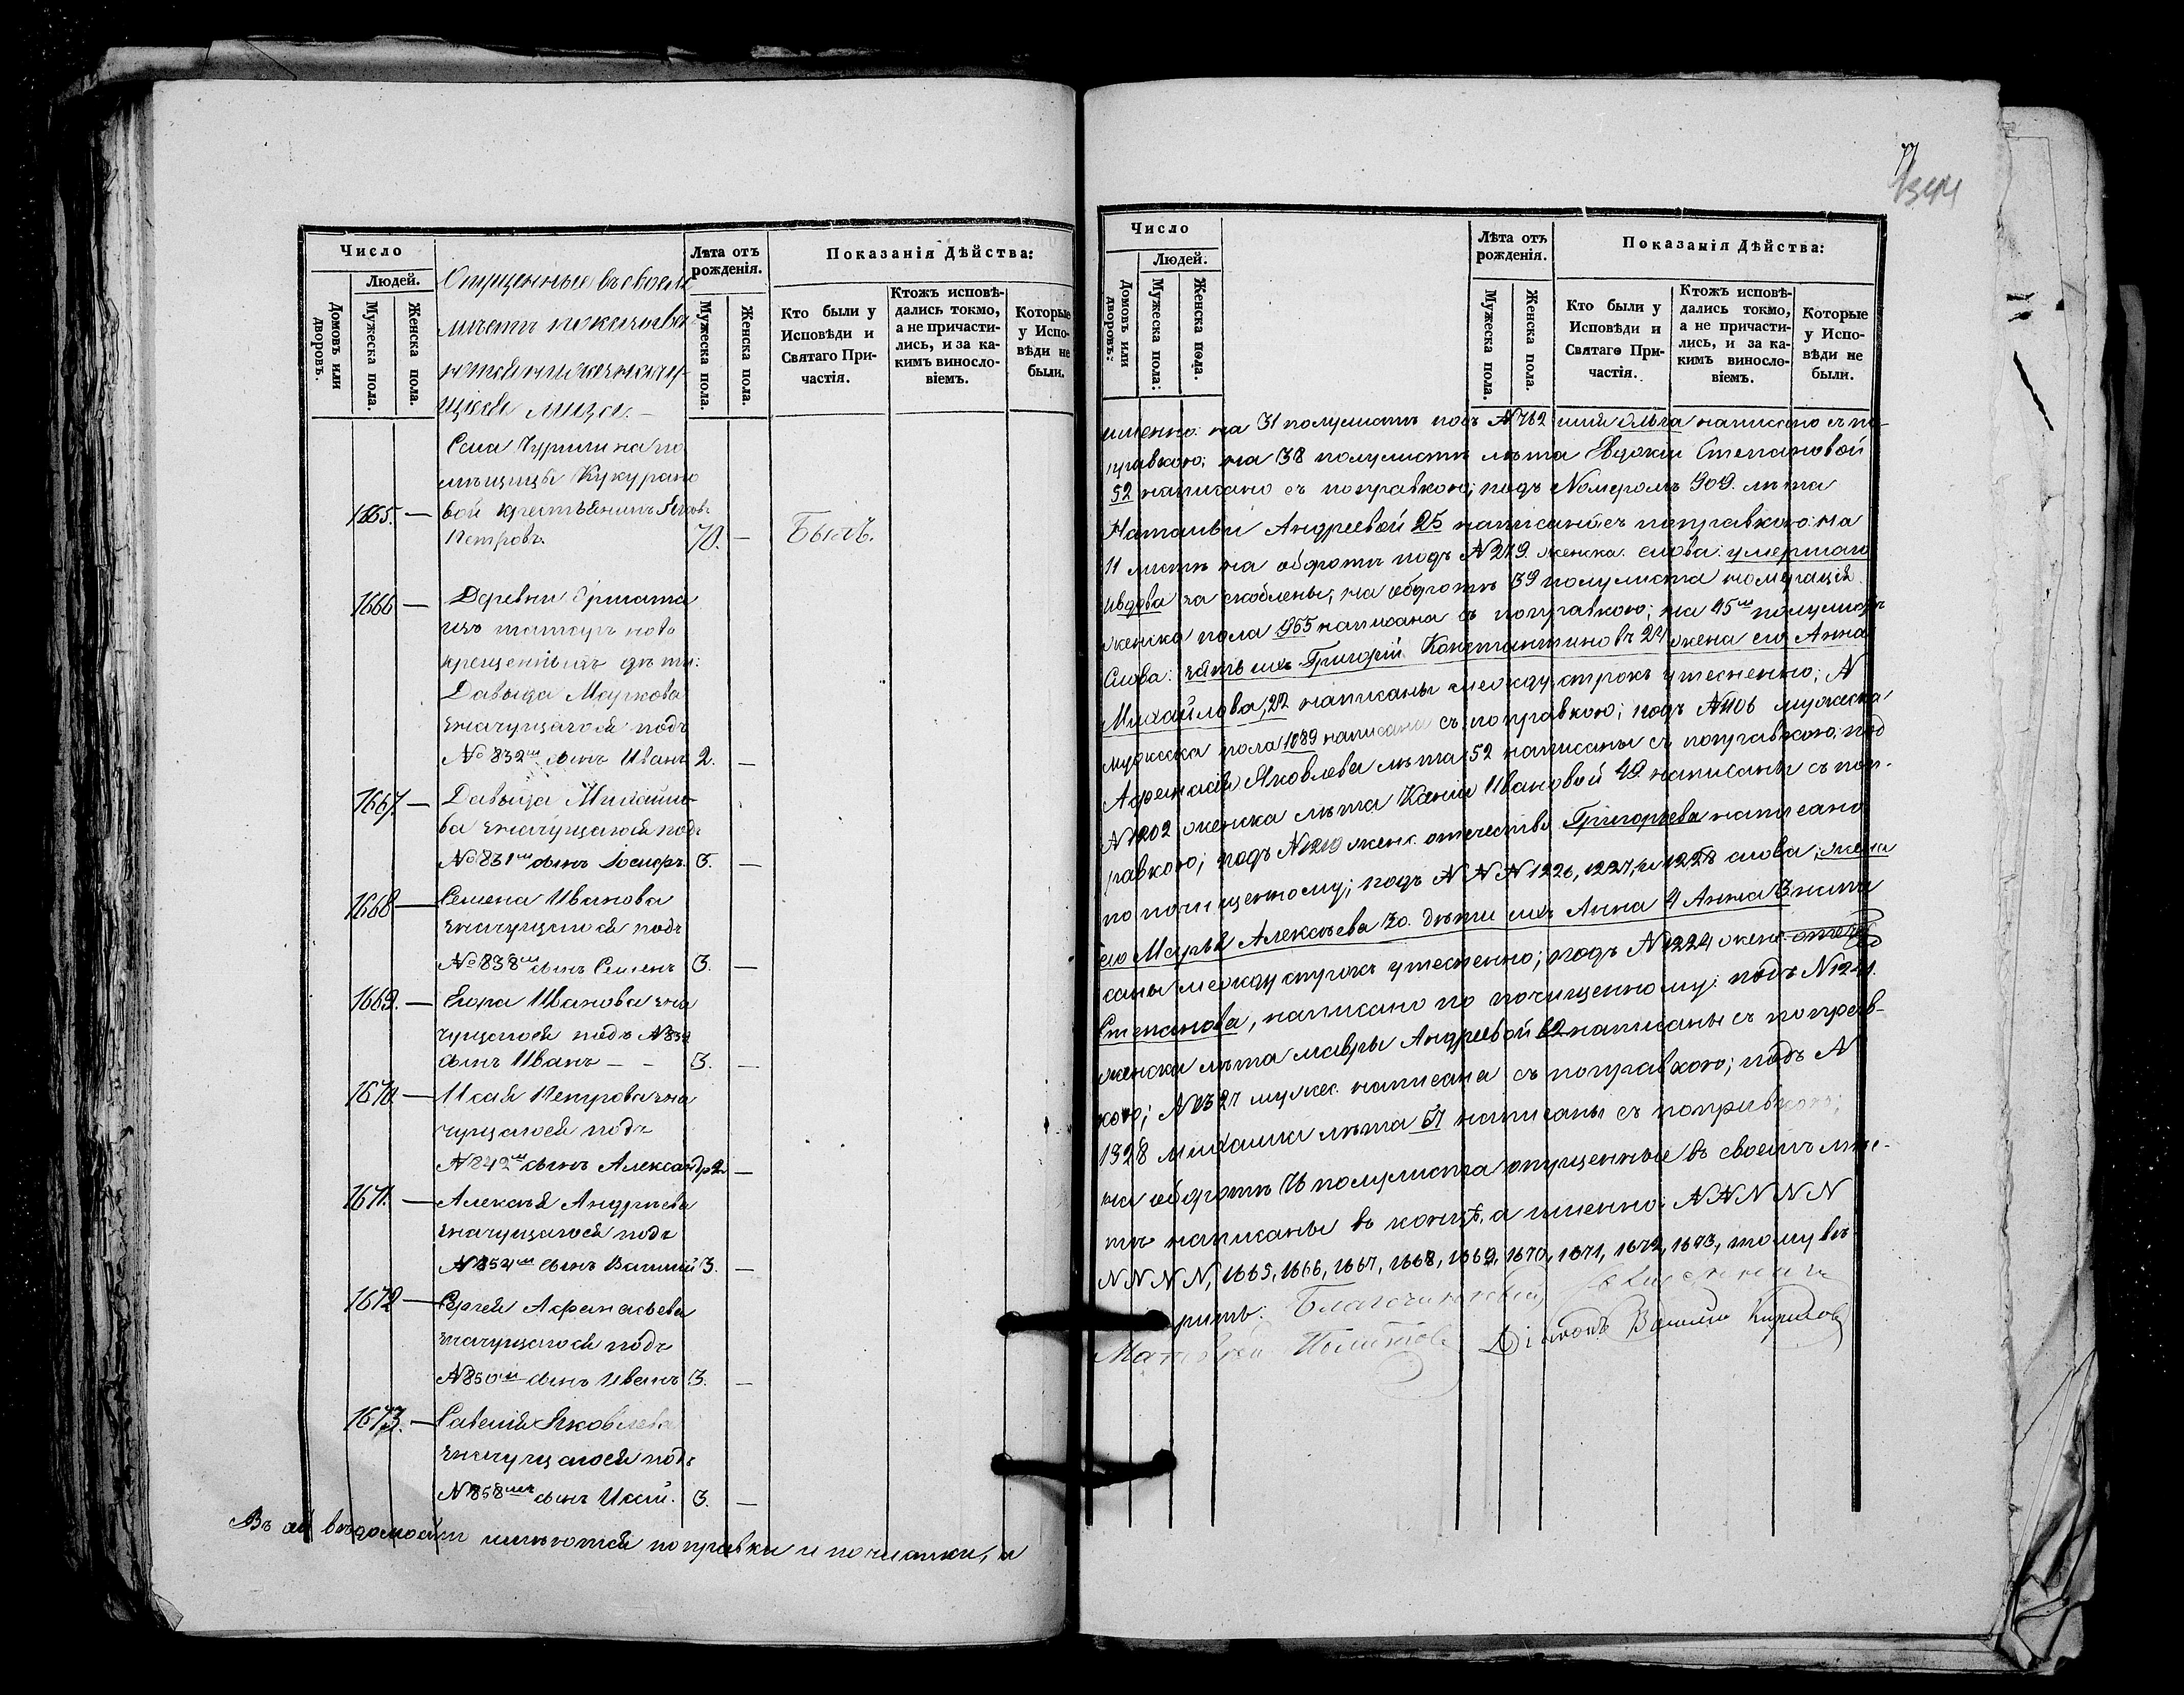 Число
Людей.
Домовъ или дворовъ.
Мужеска пола.
Женска пола.
Опущенные въ своемъ
мѣстѣ
нижезначу-
щіяся лица. –
Лѣта отъ рожденія.
Мужеска пола.
Женска пола.
Показанія Дѣйства:
Кто были у Исповѣди и Святаго Причастія.
Ктожъ исповѣ-
дались токмо,
а не причасти-
лись, и за ка-
кимъ винословіемъ.
Которые
у Испо-
вѣди не
были.
Села Чурилина по
мѣщицы Кукурано
1665. — вой крестьянинъ Яковъ
Петровъ. 70. — Былъ.
1666 — Деревни
изъ татаръ ново
крещенныхъ дѣти:
Давыда Маркова
значущагося подъ
№ 832мъ сынъ Иванъ 2. —
1667. — Давыда Михайло
ва значущагося подъ
№ 831мъ сынъ Іосифъ. 3. —
1668 — Семена Иванова
значущагося подъ
№ 838мъ сынъ Семенъ 3. —
1669. — Егора Иванова зна
чущагося подъ №
сынъ Иванъ – – 3. —
1670. — Исая Петрова зна
чущагося подъ
№ 842мъ сынъ Александръ 2. —
1671. — Алексѣя Андреева
значущагося подъ
№ 854мъ сынъ Василій 3. —
1672 — Сергея Афанасьева
значущагося подъ
№ 850мъ сынъ Иванъ 3. —
1673. — Савелія Яковлева
значущагося подъ
№ 858мъ сынъ Исай. 3. —
Въ сей вѣдомости имѣются поправки и почистки, а
77
1344
Число
Людей.
Домовъ или дворовъ.
Мужеска пола.
Женска пола.
Лѣта отъ рожденія.
Мужеска пола.
Женска пола.
Показанія Дѣйства:
Кто были у Исповѣди и Святаго Причастія.
Ктожъ исповѣ-
дались токмо,
а не причасти-
лись, и за ка-
кимъ винословіемъ.
Которые
у Испо-
вѣди не
были.
именно: на 31 полулистѣ подъ № 762 имя Ольга написано съ по-
правкою; на 38 полулистѣ лѣта Евдокіи Степановой
52 написано съ поправкою; подъ Номеромъ 909. лѣта
Наталіи Андреевой 25 написаны съ поправкою: на
11 листѣ на оборотѣ подъ № 219. женска. слова: умершаго
вдова за скоблены; на оборотѣ 39 полулиста номерація
женска пола 955 написана съ поправкою; на 45мъ полулистѣ
Слова: зять ихъ Григорій Константиновъ 24 жена его Анна
Михайлова, 22 написаны между строкъ утесненно; №
мужеска пола 1089 написана съ поправкою; подъ № 1106 мужеска
Афанасія Яковлева лѣта 52 написаны съ поправкою; подъ
№ 1202 женска лѣта Ивановой 49. написаны съ поп-
равкою; подъ № 1219 женс. отечество Григорьева написано
по почищенному; подъ № № № 1226, 1227, и 1228 слова; жена
его Марья Алексѣева 30. дѣти ихъ Анна 4 Анна 3 напи
саны между строкъ утесненно; подъ № 1224 женс.
Степанова, написано по почищенному: подъ № 1241.
женска лѣта Мавры Андреевой 62 написаны съ поправ-
кою; № 1327 мужес. написана съ поправкою; подъ №
1328 Михаила лѣта 57 написаны съ поправкою;
на оборотѣ 76 полулиста опущенные въ своемъ мѣс-
тѣ написаны въ концѣ, а именно: № № № № №
№ № № №, 1665, 1666, 1667, 1668, 1669, 1670, 1671, 1672, 1673, тому вѣ-
рить. Благочинный Священникъ
Матвѣй Діаконъ Василій Кириловъ